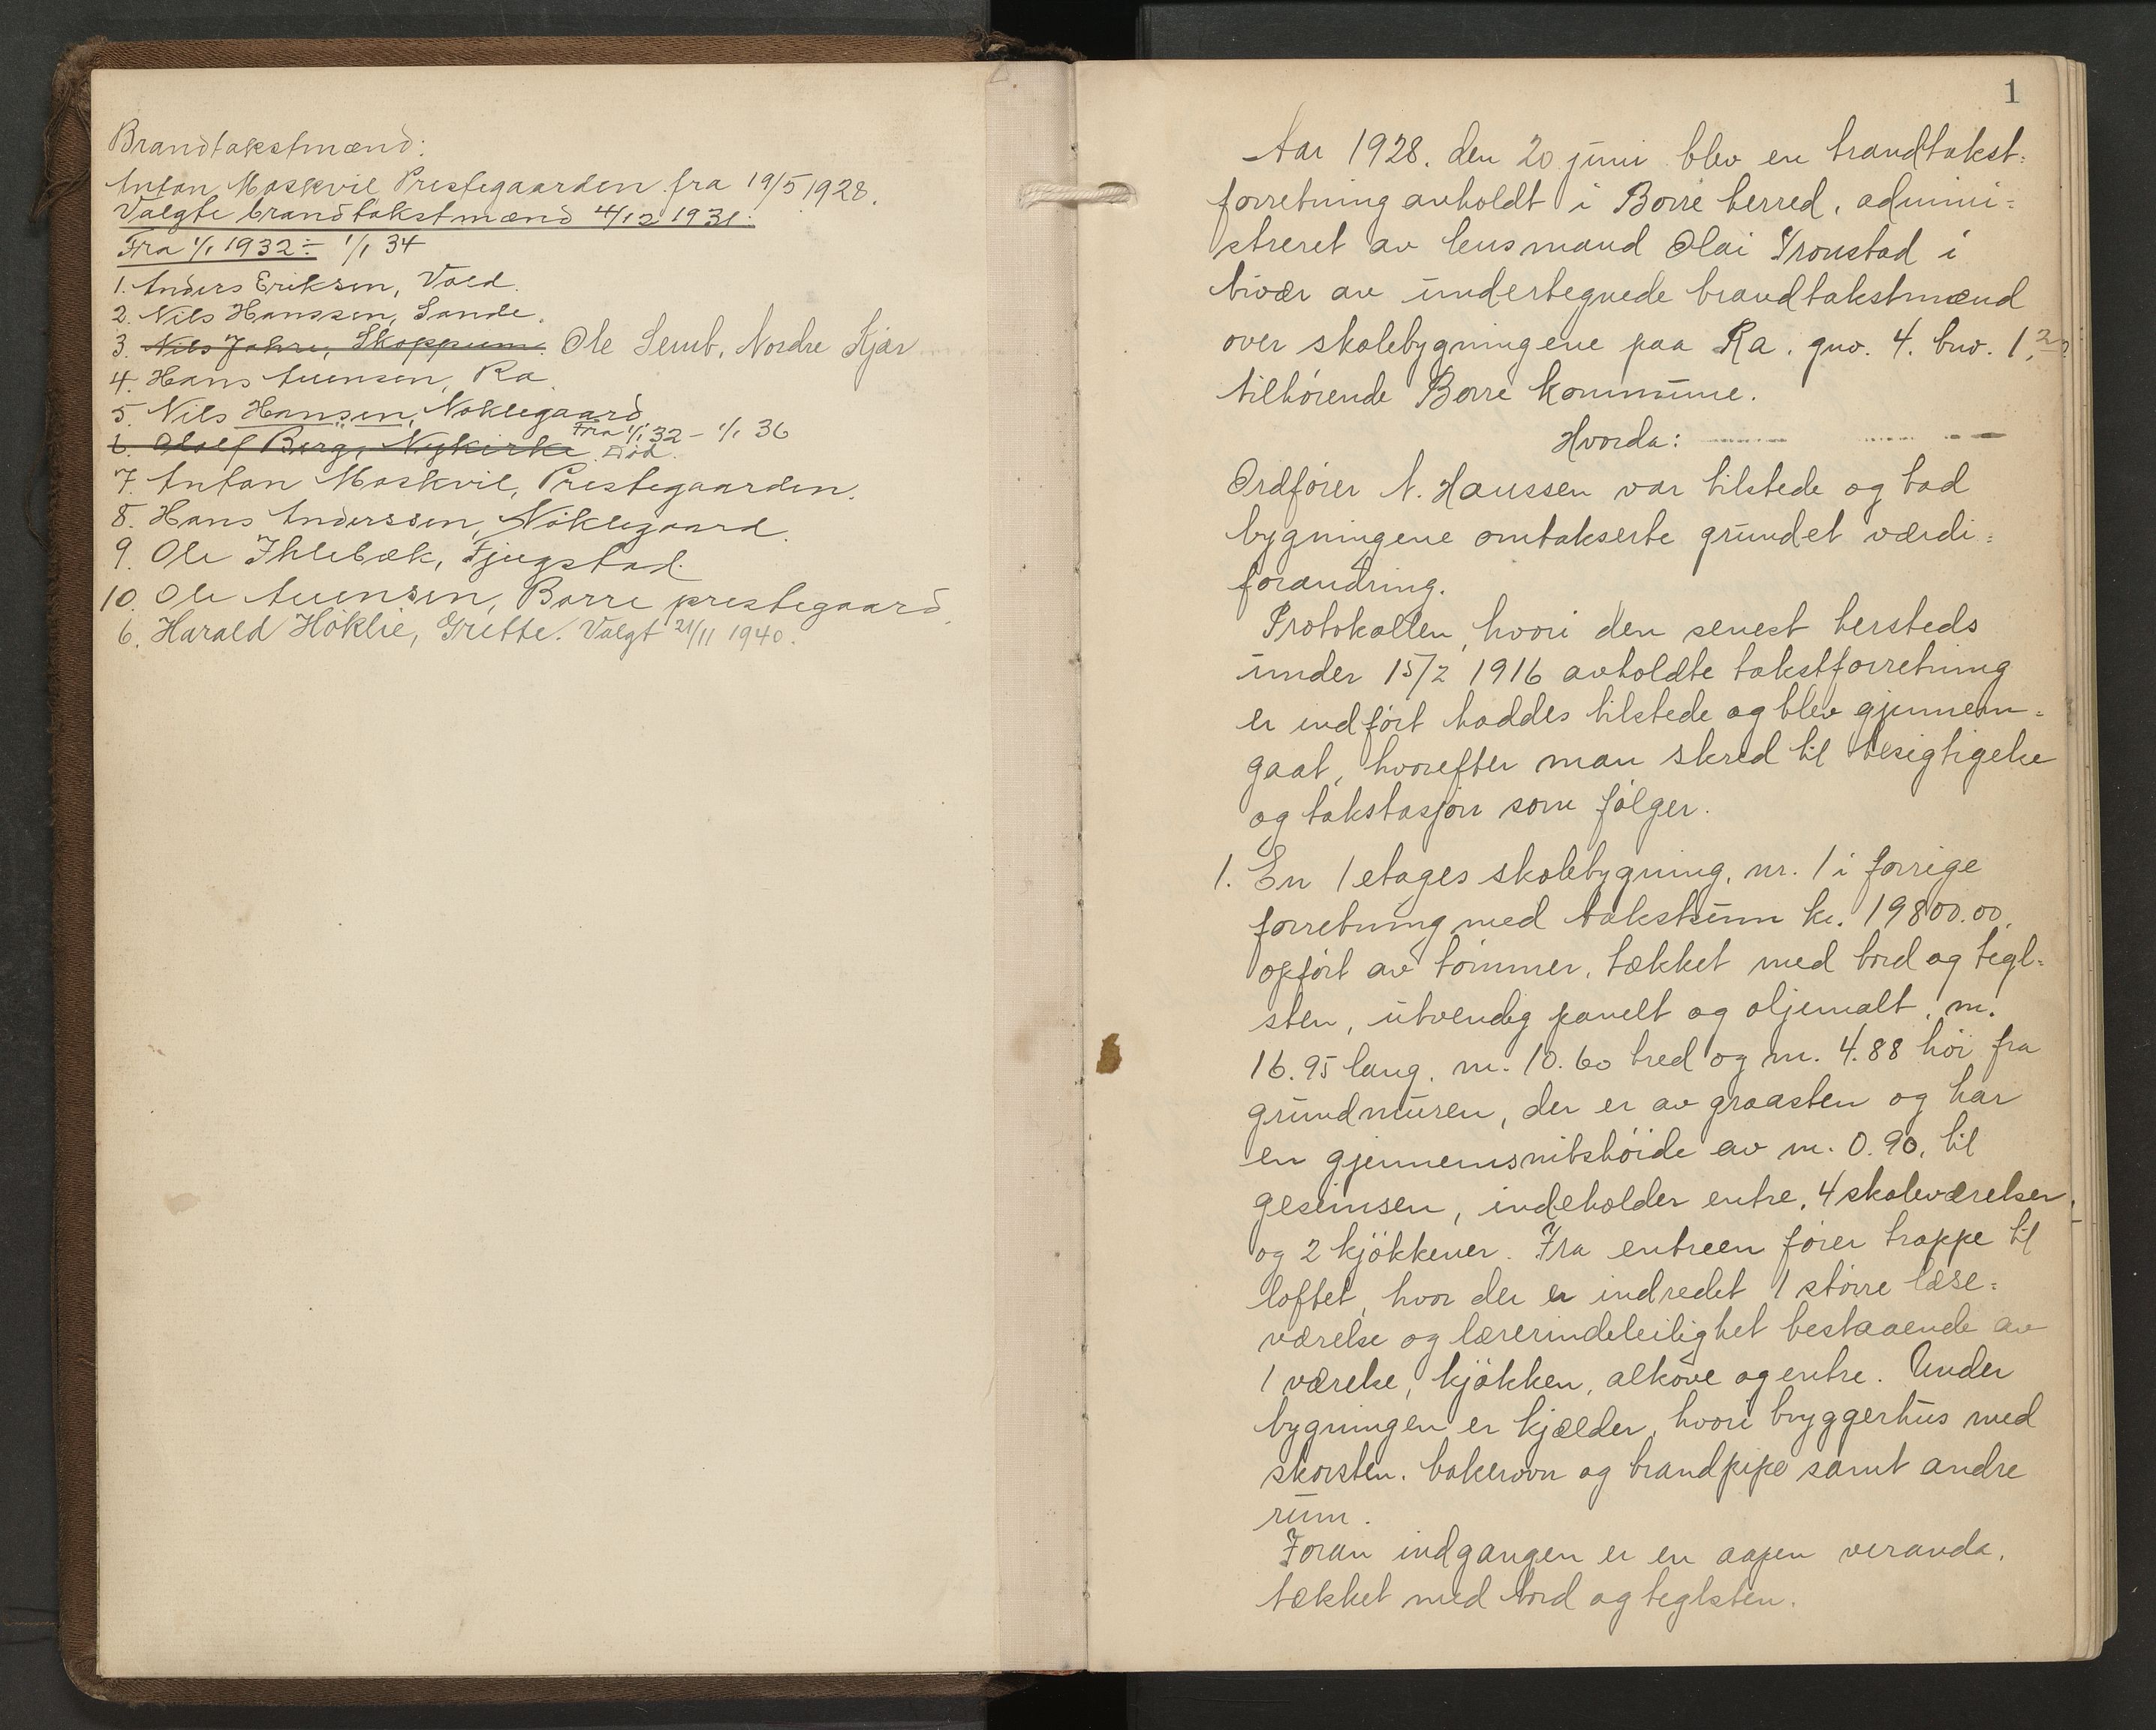 Brandtakstmænd:
Anton Moskvil Prestegaarden fra 19/5 1928.
Valgte brandtakstmænd 4/12 1931:
Fra 1/1 1932 ÷ 1/1 34
1. Anders Eriksen, Vold.
2. Nils Hanssen, Sande.
3. Nils Jahre, Skoppum. Ole Semb, Nordre Kjær
4. Hans Auensen, Ra.
5. Nils Hansen, Nöklegaard
Fra 1/1 32 – 1/1 36
6. Adolf Berg, Nykirke. Död.
7. Anton Moskvil, Prestegaarden.
8. Hans Anderssen, Nöklegaard.
9. Ole Ihlebæk, Fjugstad.
10. Ole Auensen, Borre prestegaard.
6. Harald Höklie, Grette. Valgt 21/11 1940.
1
Aar 1928. den 20 juni blev en brandtakst=
forretning avholdt i Borre herred, admini=
streret av lensmand Olai Tronstad i
hvær av undertegnede brandtakstmænd
over skolebygningene paa Ra. gno. 4. bno. 1,
tilhörende Borre kommune.
Hvorda:
Ordförer N. Hanssen var tilstede og bad
bygningene omtakserte grundet værdi=
forandring.
Protokollen, hvori den senest hersteds
under 15/2 1916 avholdte takstforretning
er indfört haddes tilstede og blev gjennem=
gaat, hvorefter man skred til besigtigelse
og takstasjon som fölger.
1. En 1 etages skolebygning, nr. 1 i forrige
forretning med takstsum kr. 19800.00,
opfört av tömmer, tækket med bord og tegl=
sten, utvendig panelt og oljemalt, m.
16.95 lang, m. 10.60 bred og m. 4.88 höi fra
grundmuren, der er av graasten og har
en gjennemsnitshöide av m. 0.90, til
gesimsen, indeholder entre, 4 skoleværelser,
og 2 kjökkener. Fra entreen förer trappe til
loftet, hvor der er indredet 1 större læse=
værelse og lærerindeleilighet bestaaende av
1 værelse, kjökken, alkove og entre. Under
bygningen er kjælder, hvori bryggerhus med
skorsten, bakerovn og brandpipe samt andre
rum.
Foran indgangen er en aapen veranda,
tækket med bord og teglsten.